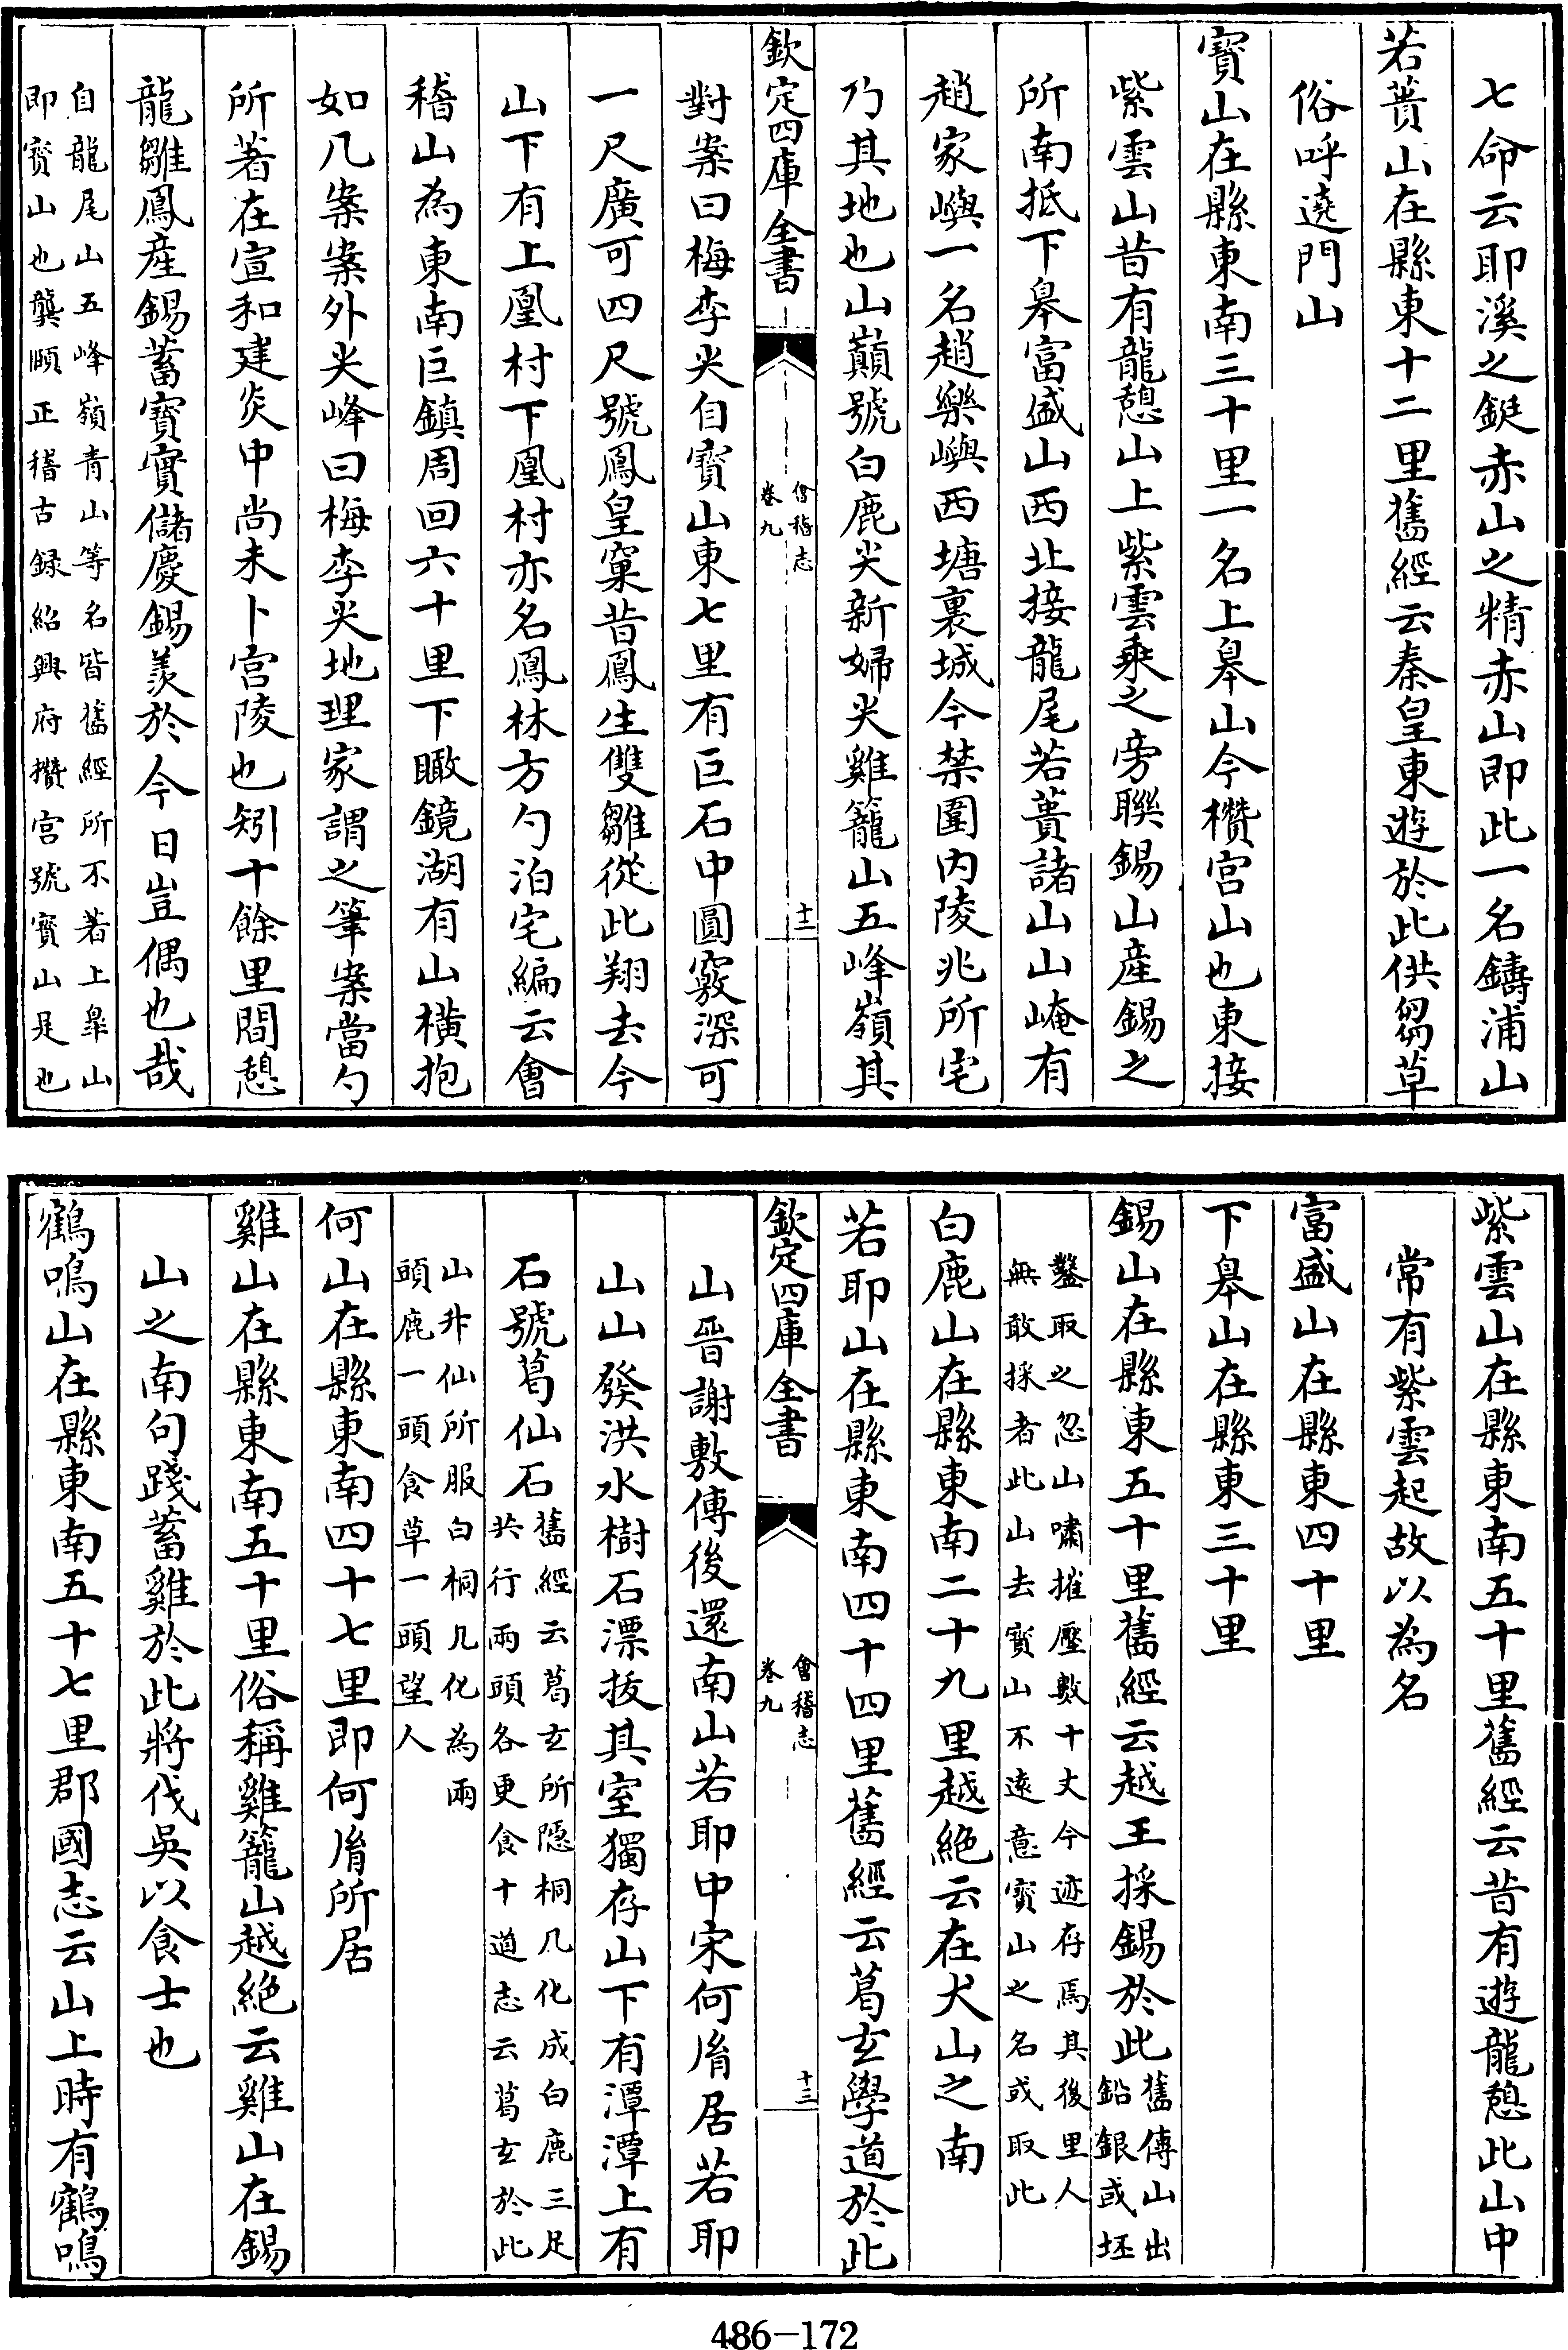 七命云耶溪之鋌赤山之精赤山即此一名鑄浦山
若蕢山在縣東十二里舊經云秦皇東遊於此供芻草
俗呼遶門山
寳山在縣東南三十里一名上皋山今欑宫山也東接
紫雲山昔有龍憩山上紫雲乘之旁聯錫山產錫之
所南抵下皋富盛山西北接龍尾若蕢諸山山崦有
趙家嶼一名趙樂嶼西塘裏城今禁圍内陵兆所宅
乃其地也山巔號白鹿尖新婦尖雞籠山五峰嶺其
欽定四庫全書
會稽志
卷九
十二
對案曰梅李尖自寳山東七里有巨石中圓竅深可
一尺廣可四尺號鳳皇窠昔鳳生雙雛從此翔去今
山下有上凰村下凰村亦名鳳林方勺泊宅編云會
稽山為東南巨鎮周回六十里下瞰鏡湖有山橫抱
如几案案外尖峰曰梅李尖地理家謂之筆案當勺
所著在宣和建炎中尚未卜宫陵也矧十餘里間憩
龍雛鳳產錫蓄寳實儲慶錫羨於今日豈偶也哉
自龍尾山五峰嶺青山等名皆舊經所不著上皋山
即寳山也龔頤正稽古録紹興府攢宫號寳山是也
紫雲山在縣東南五十里舊經云昔有遊龍憩此山中
常有紫雲起故以為名
富盛山在縣東四十里
下皋山在縣東三十里
錫山在縣東五十里舊經云越王採錫於此舊傳山出
鉛銀或坯
鑿取之忽山嘯摧壓數十丈今迹存焉其後里人
無敢採者此山去寳山不遠意寳山之名或取此
白鹿山在縣東南二十九里越絶云在犬山之南
若耶山在縣東南四十四里舊經云葛玄學道於此
欽定四庫全書
會稽志
卷九
十三
山晉謝敷傳後還南山若耶中宋何㣧居若耶
山山發洪水樹石漂拔其室獨存山下有潭潭上有
石號葛仙石舊經云葛玄所隱桐几化成白鹿三足
共行兩頭各更食十道志云葛玄於此
山升仙所服白桐几化為兩
頭鹿一頭食草一頭望人
何山在縣東南四十七里即何㣧所居
雞山在縣東南五十里俗稱雞籠山越絶云雞山在錫
山之南句踐蓄雞於此將伐吳以食士也
鶴鳴山在縣東南五十七里郡國志云山上時有鶴鳴
486-172